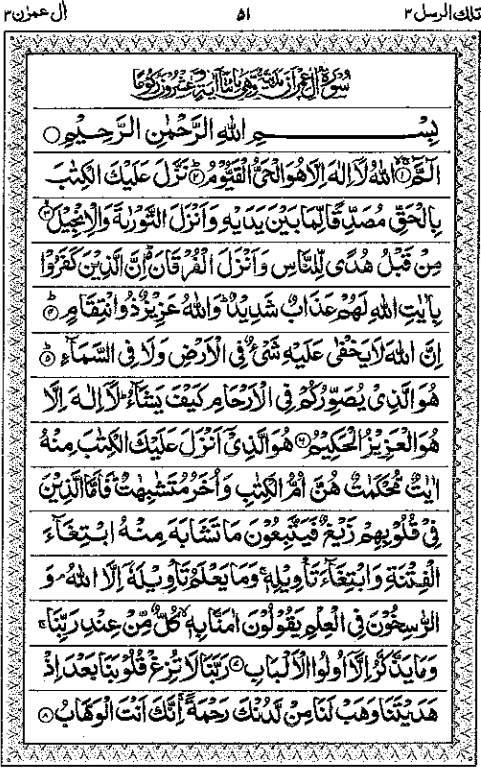 تلك الرسل ٣ ٥١ اٰل عمرٰن ٣
سُوْرَةُ اٰلِ عِمْرٰنَ مَدَنِيَّةٌ وَّهِيَ مِائَتَا اٰيَةٍ وَّعِشْرُوْنَ رُكُوْعًا
بِسْمِ اللّٰهِ الرَّحْمٰنِ الرَّحِيْمِ
الٓمّٓ ۙ﴿۱﴾ اللّٰهُ لَاۤ اِلٰهَ اِلَّا هُوَ الْحَیُّ الْقَیُّوْمُ ؕ﴿۲﴾ نَزَّلَ عَلَیْكَ الْكِتٰبَ
بِالْحَقِّ مُصَدِّقًا لِّمَا بَیْنَ یَدَیْهِ وَاَنْزَلَ التَّوْرٰىةَ وَالْاِنْجِیْلَ ۙ﴿۳﴾
مِنْ قَبْلُ هُدًی لِّلنَّاسِ وَاَنْزَلَ الْفُرْقَانَ ؕ اِنَّ الَّذِیْنَ كَفَرُوْا
بِاٰیٰتِ اللّٰهِ لَهُمْ عَذَابٌ شَدِیْدٌ ؕ وَاللّٰهُ عَزِیْزٌ ذُوانْتِقَامٍ ؕ﴿۴﴾
اِنَّ اللّٰهَ لَا یَخْفٰی عَلَیْهِ شَیْءٌ فِی الْاَرْضِ وَلَا فِی السَّمَآءِ ؕ﴿۵﴾
هُوَ الَّذِیْ یُصَوِّرُكُمْ فِی الْاَرْحَامِ كَیْفَ یَشَآءُ ؕ لَاۤ اِلٰهَ اِلَّا
هُوَ الْعَزِیْزُ الْحَكِیْمُ ﴿۶﴾ هُوَ الَّذِیْۤ اَنْزَلَ عَلَیْكَ الْكِتٰبَ مِنْهُ
اٰیٰتٌ مُّحْكَمٰتٌ هُنَّ اُمُّ الْكِتٰبِ وَاُخَرُ مُتَشٰبِهٰتٌ ؕ فَاَمَّا الَّذِیْنَ
فِیْ قُلُوْبِهِمْ زَیْغٌ فَیَتَّبِعُوْنَ مَا تَشَابَهَ مِنْهُ ابْتِغَآءَ
الْفِتْنَةِ وَابْتِغَآءَ تَاْوِیْلِهٖ ۚ وَمَا یَعْلَمُ تَاْوِیْلَهٗۤ اِلَّا اللّٰهُ ۘ وَ
الرّٰسِخُوْنَ فِی الْعِلْمِ یَقُوْلُوْنَ اٰمَنَّا بِهٖ ۙ كُلٌّ مِّنْ عِنْدِ رَبِّنَا ۚ
وَمَا یَذَّكَّرُ اِلَّاۤ اُولُوا الْاَلْبَابِ ﴿۷﴾ رَبَّنَا لَا تُزِغْ قُلُوْبَنَا بَعْدَ اِذْ
هَدَیْتَنَا وَهَبْ لَنَا مِنْ لَّدُنْكَ رَحْمَةً ۚ اِنَّكَ اَنْتَ الْوَهَّابُ ﴿۸﴾